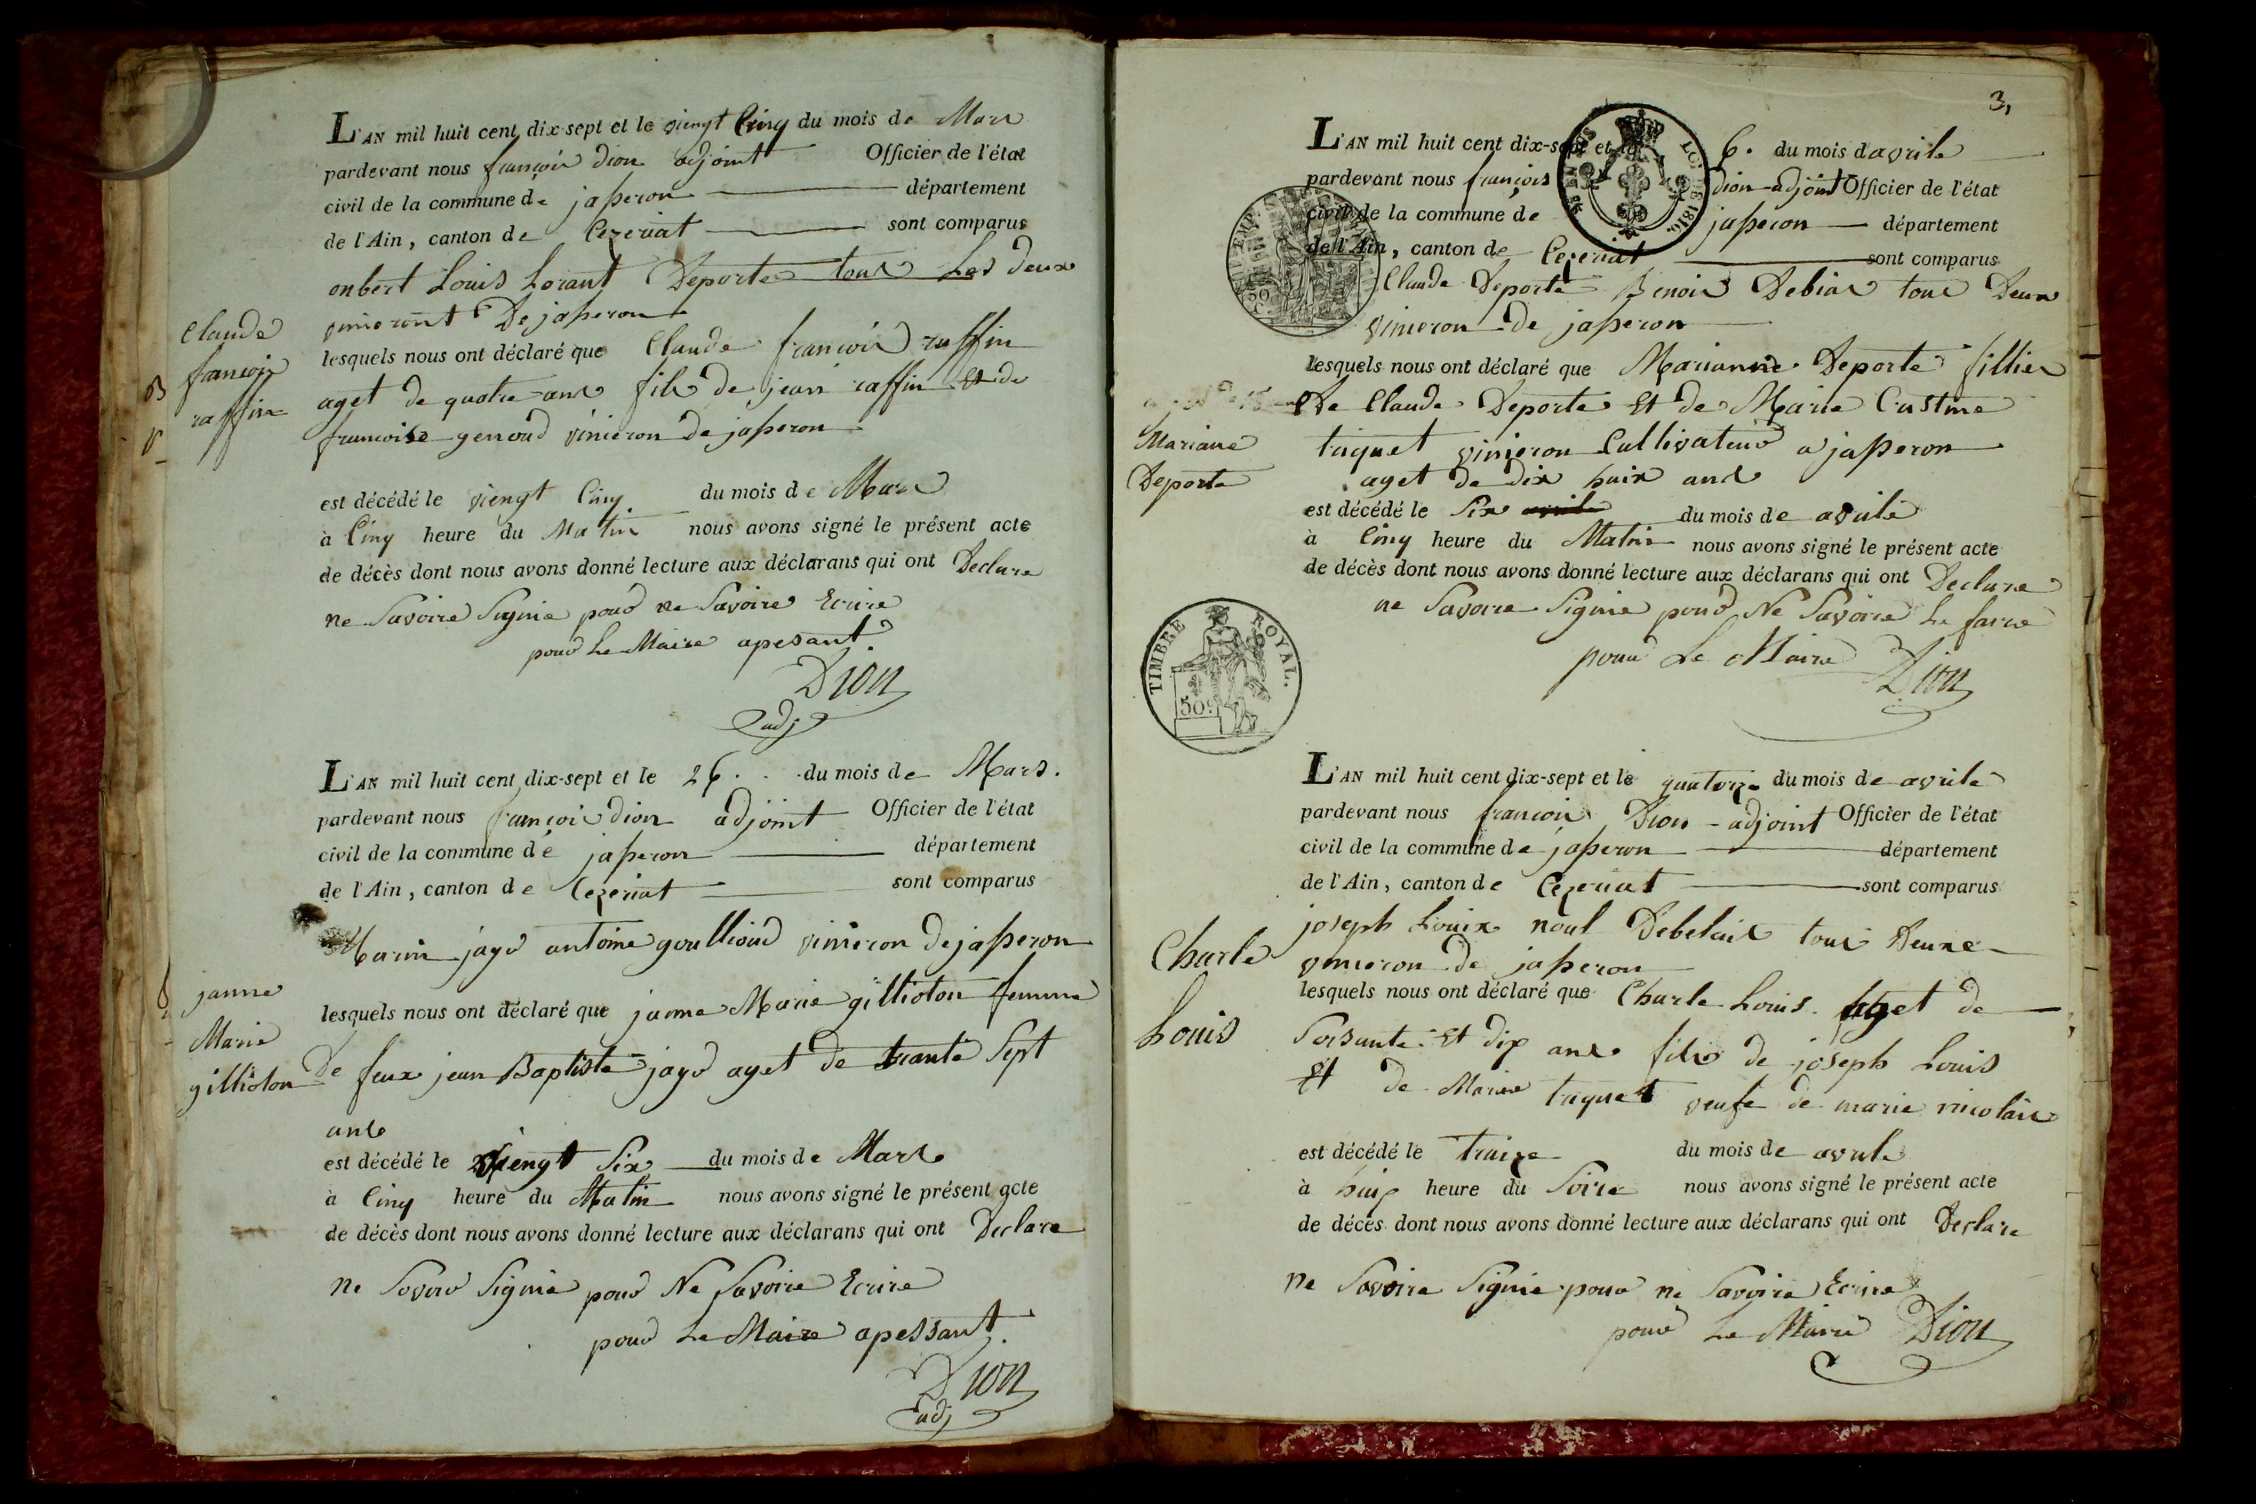 L'AN mil huit cent dix-sept et le viengt Cinq du mois de Mars
pardevant nous françois dion adjoint Officier de l'état
civil de la commune de jasseron département
de l'Ain, canton de Cezeriat sont comparus
onbert Louis Lorant Deporte tous Les deux
vinieront De jasseron
Claude
francois
raffin
lesquels nous ont déclaré que Claude francois raffin
aget de quatre ans fils de jean raffin Et de
francoise genoud vinieron de jasseron
est décédé le viengt Cinq du mois de Mars
à Cinq heure du Matin nous avons signé le présent acte
de décès dont nous avons donné lecture aux déclarans qui ont Declare
ne Savoire Signie pour ne Savoire Ecrire
pour Le Maire apesant
Dion
adj
L'AN mil huit cent dix-sept et le 26. du mois de Mars.
pardevant nous françois dion adjoint Officier de l'état
civil de la commune de jasseron département
de l'Ain, canton de Cezeriat sont comparus
Marin jayr antoine goullioud vinieron de jasseron
janne
Marie
gillioton
lesquels nous ont déclaré que janne Marie gillioton femme
De feux jean Baptiste jayr aget de trante Sept
ans
est décédé le viengt Six du mois de Mars
à Cinq heure du Matin nous avons signé le présent acte
de décès dont nous avons donné lecture aux déclarans qui ont Declare
ne Sovoir Signie pour Ne Savoire Ecrire
pour Le Maire apessant.
Dion
adj
3,
L'AN mil huit cent dix-sept et le 6. du mois d avrile
pardevant nous françois dion adjoint Officier de l'état
civil de la commune de jasseron département
de l'Ain, canton de Cezeriat sont comparus
Claude Deporte Benois Debias tous Deux
vinieron de jasseron
lesquels nous ont déclaré que Marianne Deporte fillies
De Claude Deporte Et de Marie Custine
Mariane
Deporte
taquet vinieron Cultivateur a jasseron
aget de dix huix ans
est décédé le Six du mois de avrile
à Cinq heure du Matin nous avons signé le présent acte
de décès dont nous avons donné lecture aux déclarans qui ont Declare
ne Savoire Signie pour Ne Savoire Le faire
pour Le Maire Dion
TIMBRE ROYAL.
50c.
L'AN mil huit cent dix-sept et le quatorze du mois de avrile
pardevant nous francois Dion adjoint Officier de l'état
civil de la commune de jasseron département
de l'Ain, canton de Cezeriat sont comparus
joseph Louix noul Debelais tous Deuxe
vinieron de jasseron
Charle
Louis
lesquels nous ont déclaré que Charle Louis aget de
Soisante Et dix ans fils de joseph Louis
Et de Marie taquet veufe de marie nicolais
est décédé le traize du mois de avrile
à huis heure du Soire nous avons signé le présent acte
de décès dont nous avons donné lecture aux déclarans qui ont Declare
ne Savoire Signie pour ne Savoire Ecrire
pour Le Maire Dion